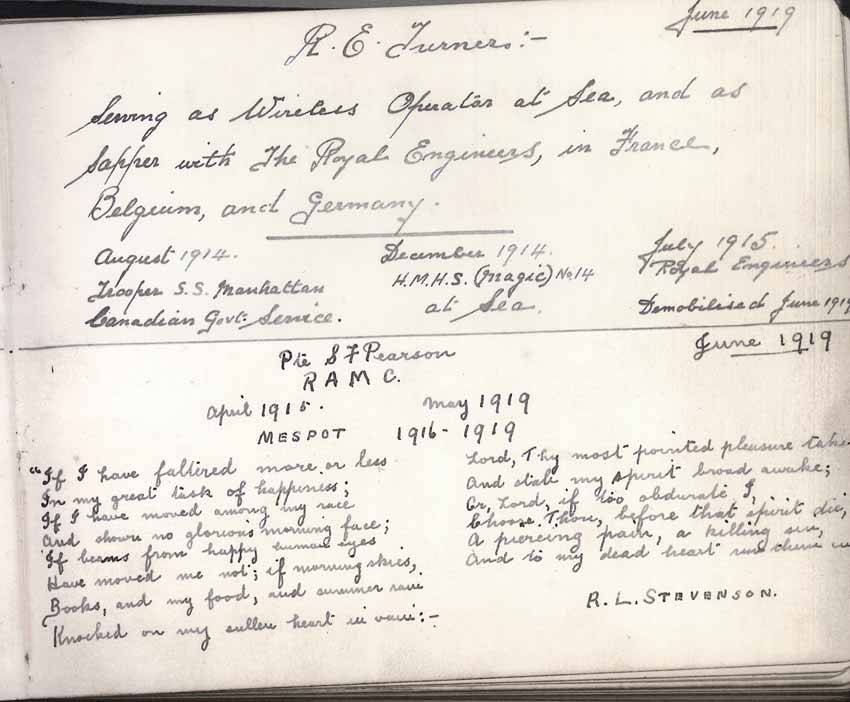 June 1919
R. E. Turner:-
Serving as Wireless Operator at Sea, and as
Sapper with The Royal Engineers, in France,
Belgium, and Germany.
August 1914.
Trooper S.S. Manhattan
Canadian Govt. Service.
December 1914.
H.M.H.S. (Magic) No 14
at Sea.
July 1915.
Royal Engineers
Demobilised June 1919
June 1919
Pte S F Pearson
R A M C.
April 1915. May 1919
MESPOT 1916-1919
"If I have faltered more or less
In my great task of happiness;
If I have moved among my race
And shown no glorious morning face;
If beams from happy human eyes
Have moved me not; if morning skies,
Books, and my food, and summer rain
Knocked on my sullen heart in vain:-
Lord, Thy most pointed pleasure take
And stab my spirit broad awake;
Or, Lord, if too obdurate I,
Choose Thou, before that spirit die,
A piercing pain, a killing sin,
And to my dead heart run them in
R. L. STEVENSON.